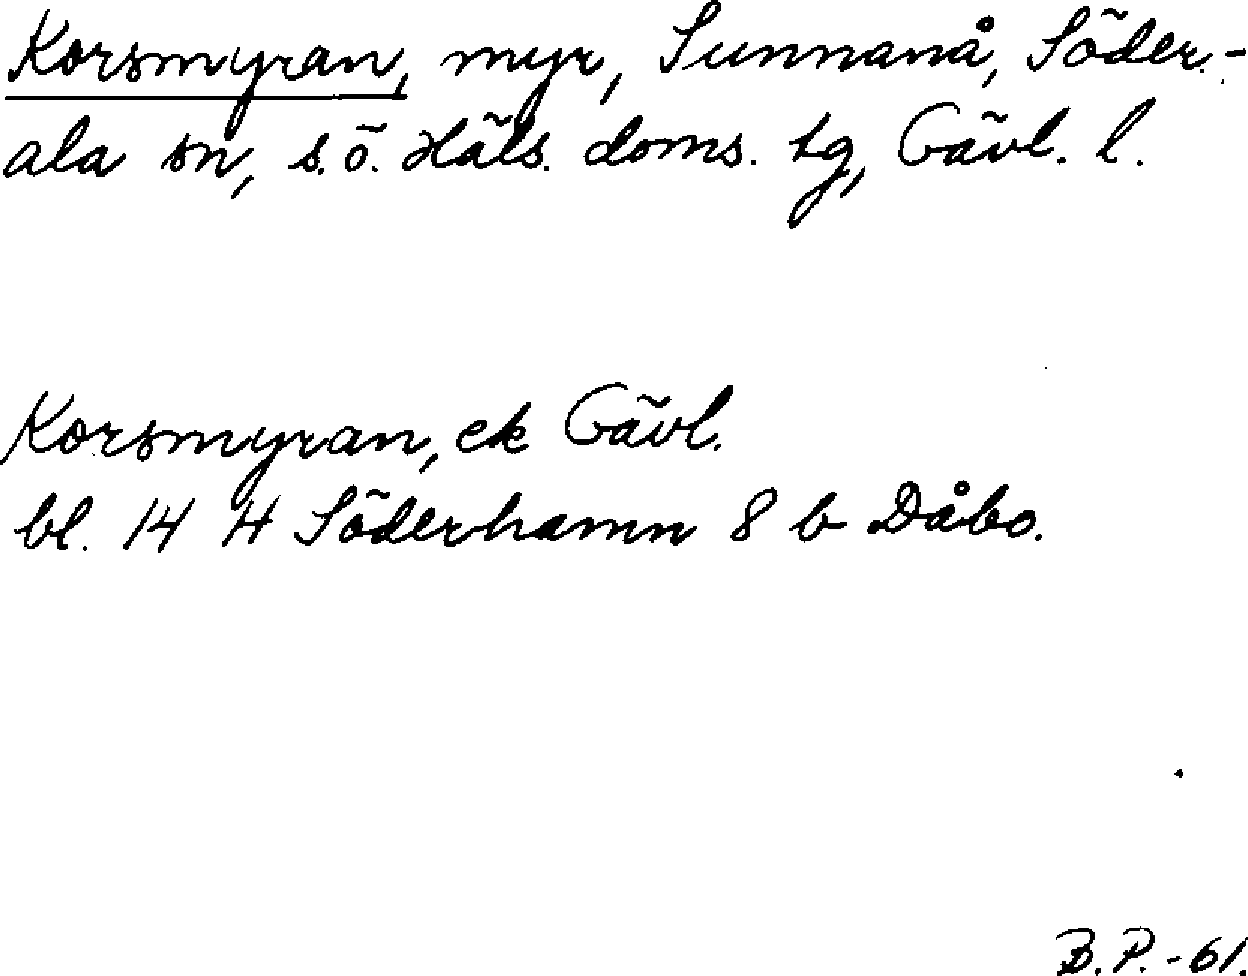 Korsmyran, myr, Sunnanå, Söder-
ala sn, s.ö. Häls. doms. tg, Gävl. l.
Korsmyran, ek Gävl.
bl. 14 H Söderhamn 8 b Dåbo.
B.P.-61.